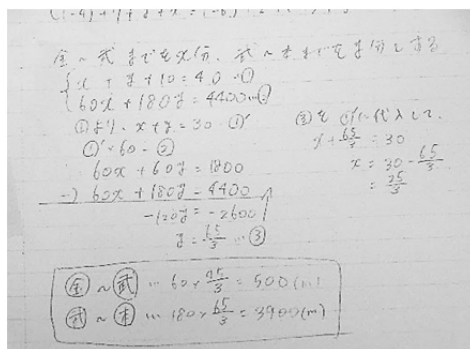 金～武 までをx分、武～本までをy分とする
x + y + 10 = 40 …①
60x + 180y = 4400 …②
①より、x + y = 30 …①'
①'×60 - ②
60x + 60y = 1800
-) 60x + 180y = 4400
-120y = -2600
y = 65/3 …③
③を①'に代入して、
x + 65/3 = 30
x = 30 - 65/3
= 25/3
金～武 … 60 × 25/3 = 500(m)
武～本 … 180 × 65/3 = 3900(m)